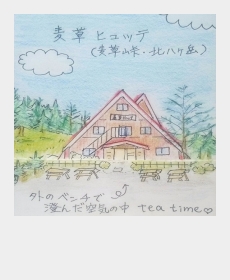 麦草ヒュッテ
(麦草峠・北八ヶ岳)
外のベンチで
澄んだ空気の中 tea time♡